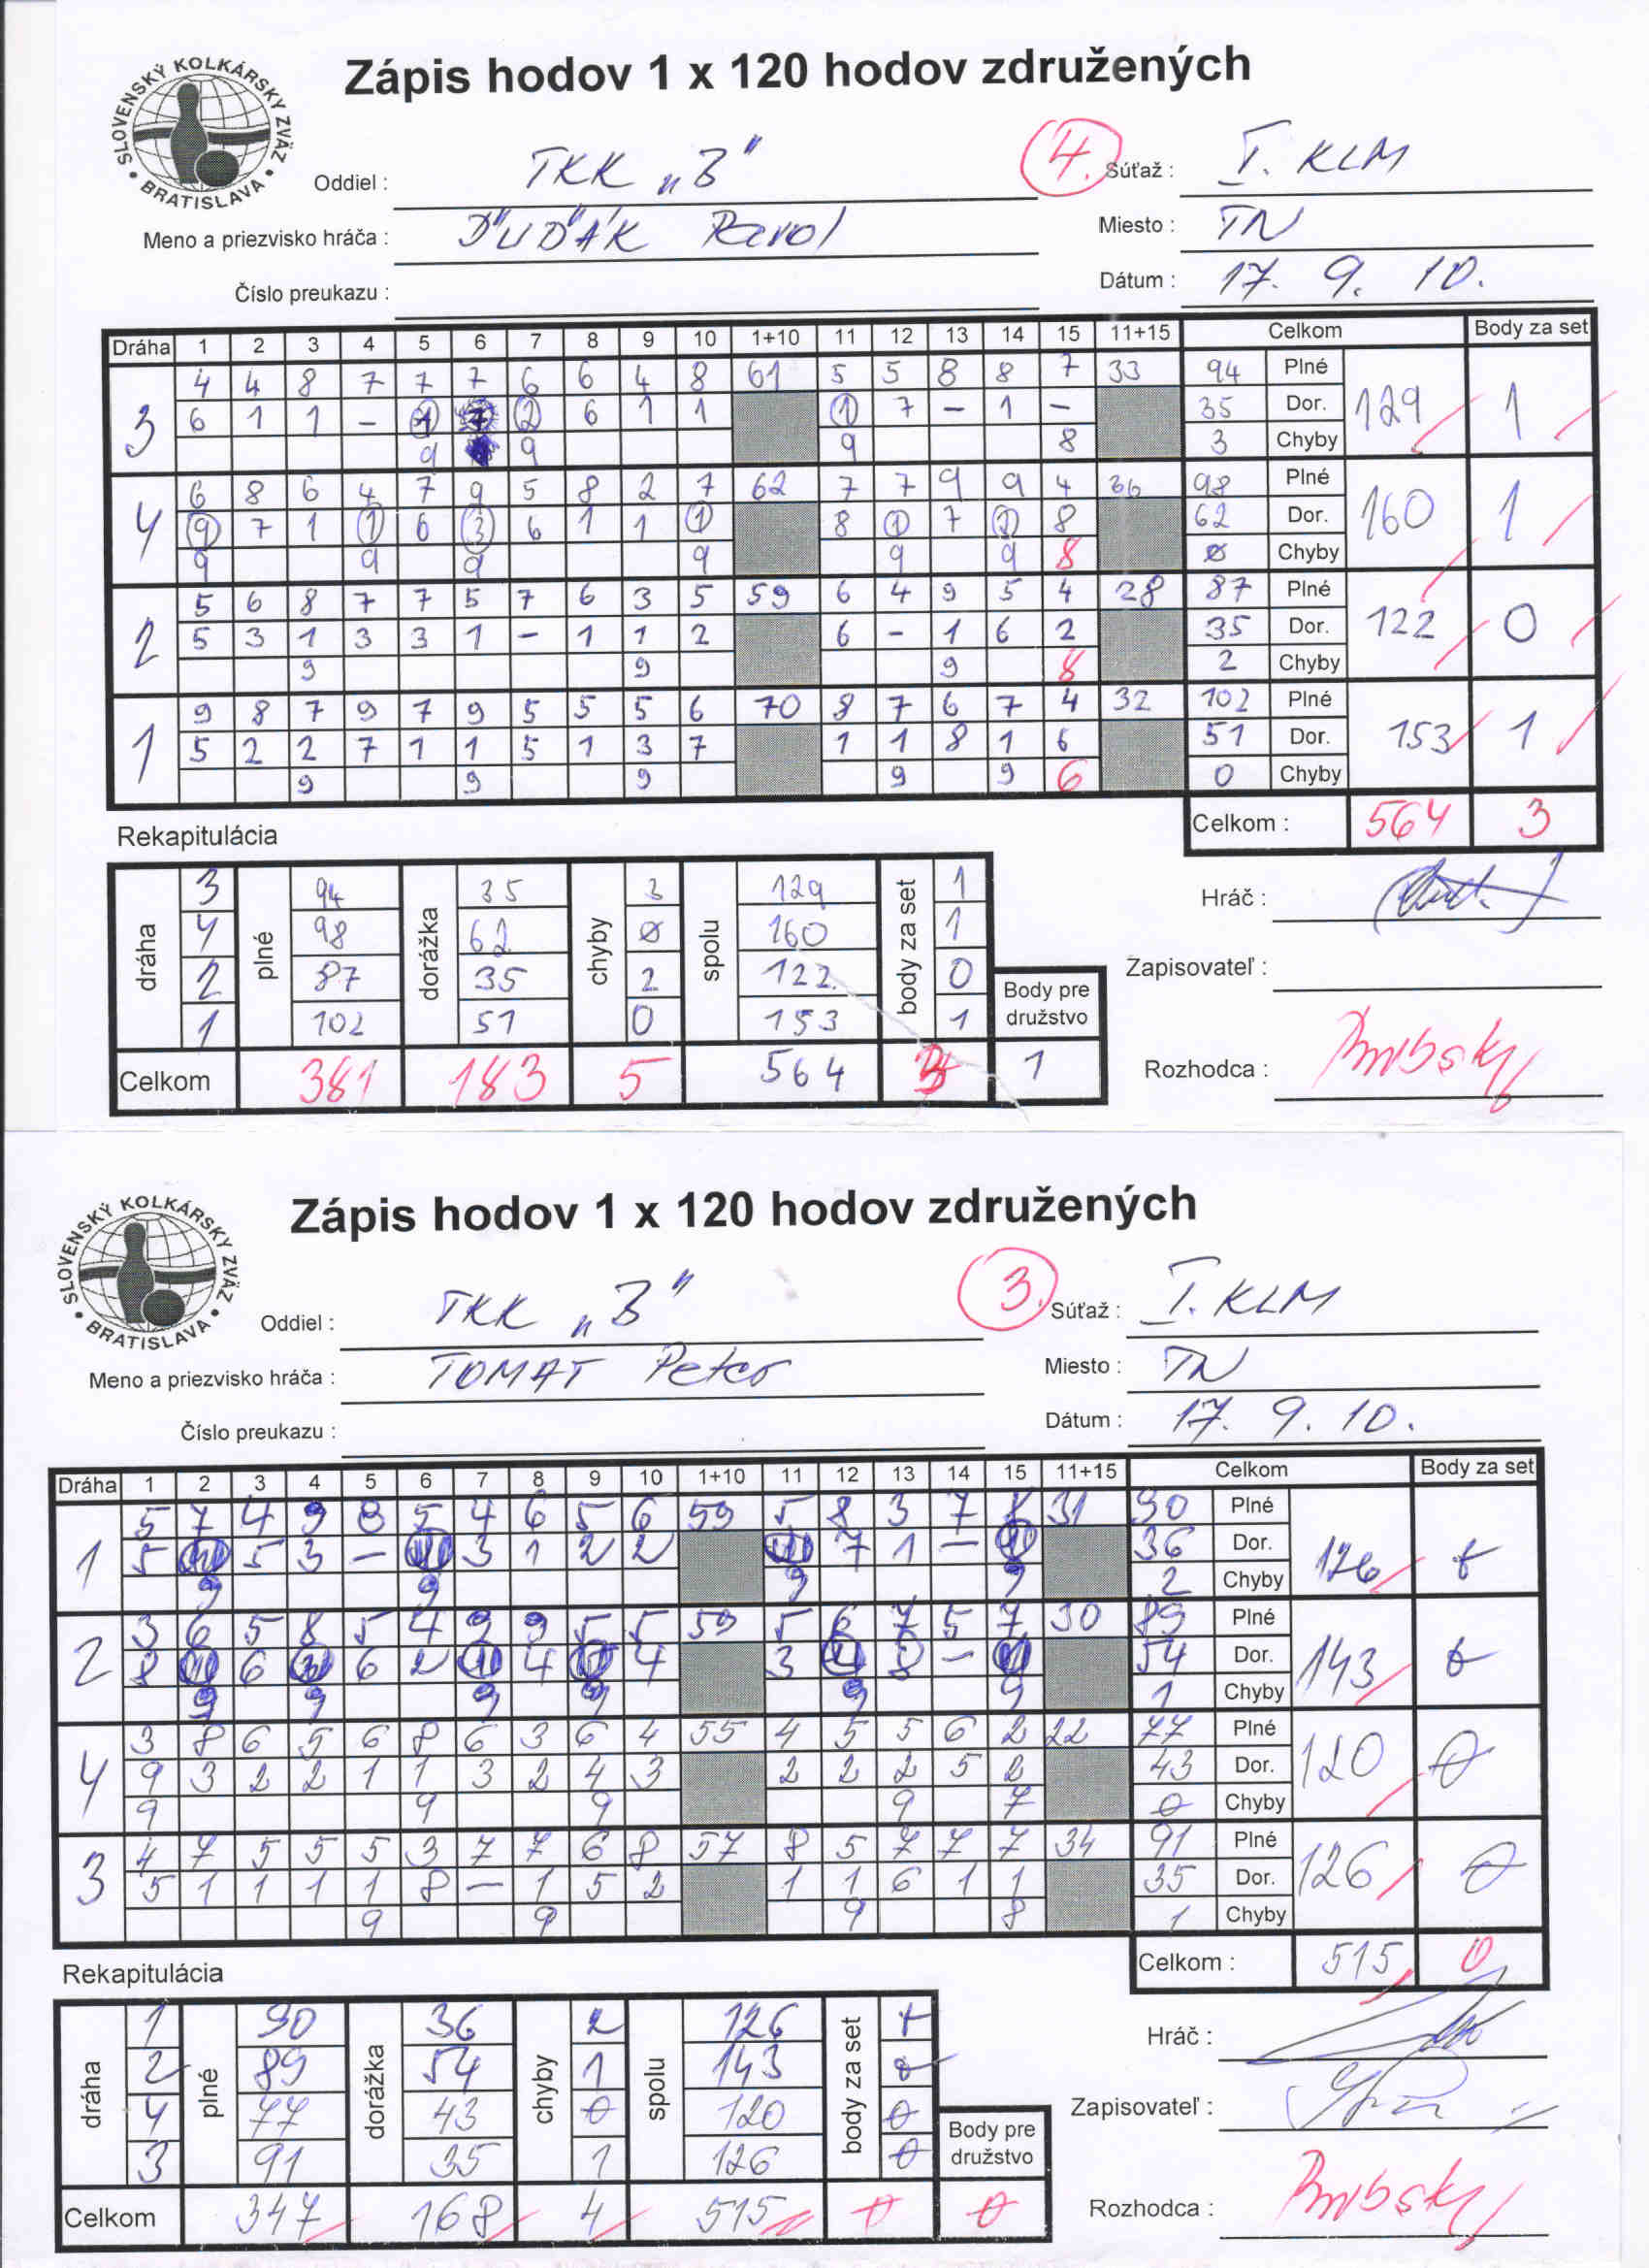 SLOVENSKÝ KOLKÁRSKY ZVÄZ • BRATISLAVA •
Zápis hodov 1 x 120 hodov združených
Oddiel : TKK „B" 4. Súťaž : I. KLM
Meno a priezvisko hráča : ĎUĎÁK Pavol Miesto : TN
Číslo preukazu : Dátum : 17. 9. 10.
Dráha 1 2 3 4 5 6 7 8 9 10 1+10 11 12 13 14 15 11+15 Celkom Body za set
4 4 8 7 7 7 6 6 4 8 61 5 5 8 8 7 33 94 Plné
3 6 1 1 – 1 7 2 6 1 1 1 7 – 1 – 35 Dor. 129 1
9 9 9 8 3 Chyby
6 8 6 4 7 9 5 8 2 7 62 7 7 9 9 4 36 98 Plné
4 9 7 1 1 6 3 6 1 1 1 8 1 7 1 8 62 Dor. 160 1
9 9 9 9 9 9 8 0 Chyby
5 6 8 7 7 5 7 6 3 5 59 6 4 9 5 4 28 87 Plné
2 5 3 1 3 3 1 – 1 1 2 6 – 1 6 2 35 Dor. 122 0
9 9 9 8 2 Chyby
9 8 7 9 7 9 5 5 5 6 70 8 7 6 7 4 32 102 Plné
1 5 2 2 7 1 1 5 1 3 7 1 1 8 1 6 51 Dor. 153 1
9 9 9 9 9 6 0 Chyby
Celkom : 564 3
Rekapitulácia
dráha plné dorážka chyby spolu body za set
3 94 35 3 129 1
4 98 62 0 160 1
2 87 35 2 122 0
1 102 51 0 153 1
Body pre družstvo
Celkom 381 183 5 564 3 1
Hráč :
Zapisovateľ :
Rozhodca :
SLOVENSKÝ KOLKÁRSKY ZVÄZ • BRATISLAVA •
Zápis hodov 1 x 120 hodov združených
Oddiel : TKK „B" 3. Súťaž : I. KLM
Meno a priezvisko hráča : TOMAT Peter Miesto : TN
Číslo preukazu : Dátum : 17. 9. 10.
Dráha 1 2 3 4 5 6 7 8 9 10 1+10 11 12 13 14 15 11+15 Celkom Body za set
5 7 4 9 8 5 4 6 5 6 59 5 8 3 7 8 31 90 Plné
1 5 5 3 – 3 1 2 2 7 1 – 36 Dor. 126
9 9 9 9 2 Chyby
3 6 5 8 5 4 9 9 5 5 59 5 6 7 5 7 30 89 Plné
2 8 6 6 2 4 4 3 8 – 54 Dor. 143
9 9 9 9 9 9 1 Chyby
3 8 6 5 6 8 6 3 6 4 55 4 5 5 6 2 22 77 Plné
4 9 3 2 2 1 1 3 2 4 3 2 2 2 5 2 43 Dor. 120 0
9 9 9 9 7 0 Chyby
4 7 5 5 5 3 7 7 6 8 57 8 5 7 7 7 34 91 Plné
3 5 1 1 1 1 8 – 1 5 2 1 1 6 1 1 35 Dor. 126 0
9 9 9 8 1 Chyby
Celkom : 515 0
Rekapitulácia
dráha plné dorážka chyby spolu body za set
1 90 36 2 126
2 89 54 1 143 0
4 77 43 0 120 0
3 91 35 1 126 0
Body pre družstvo
Celkom 347 168 4 515 0 0
Hráč :
Zapisovateľ :
Rozhodca :